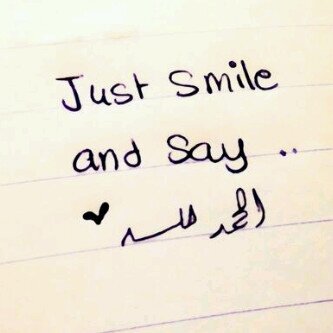 Just Smile
and Say ..
الحمد لله ♥